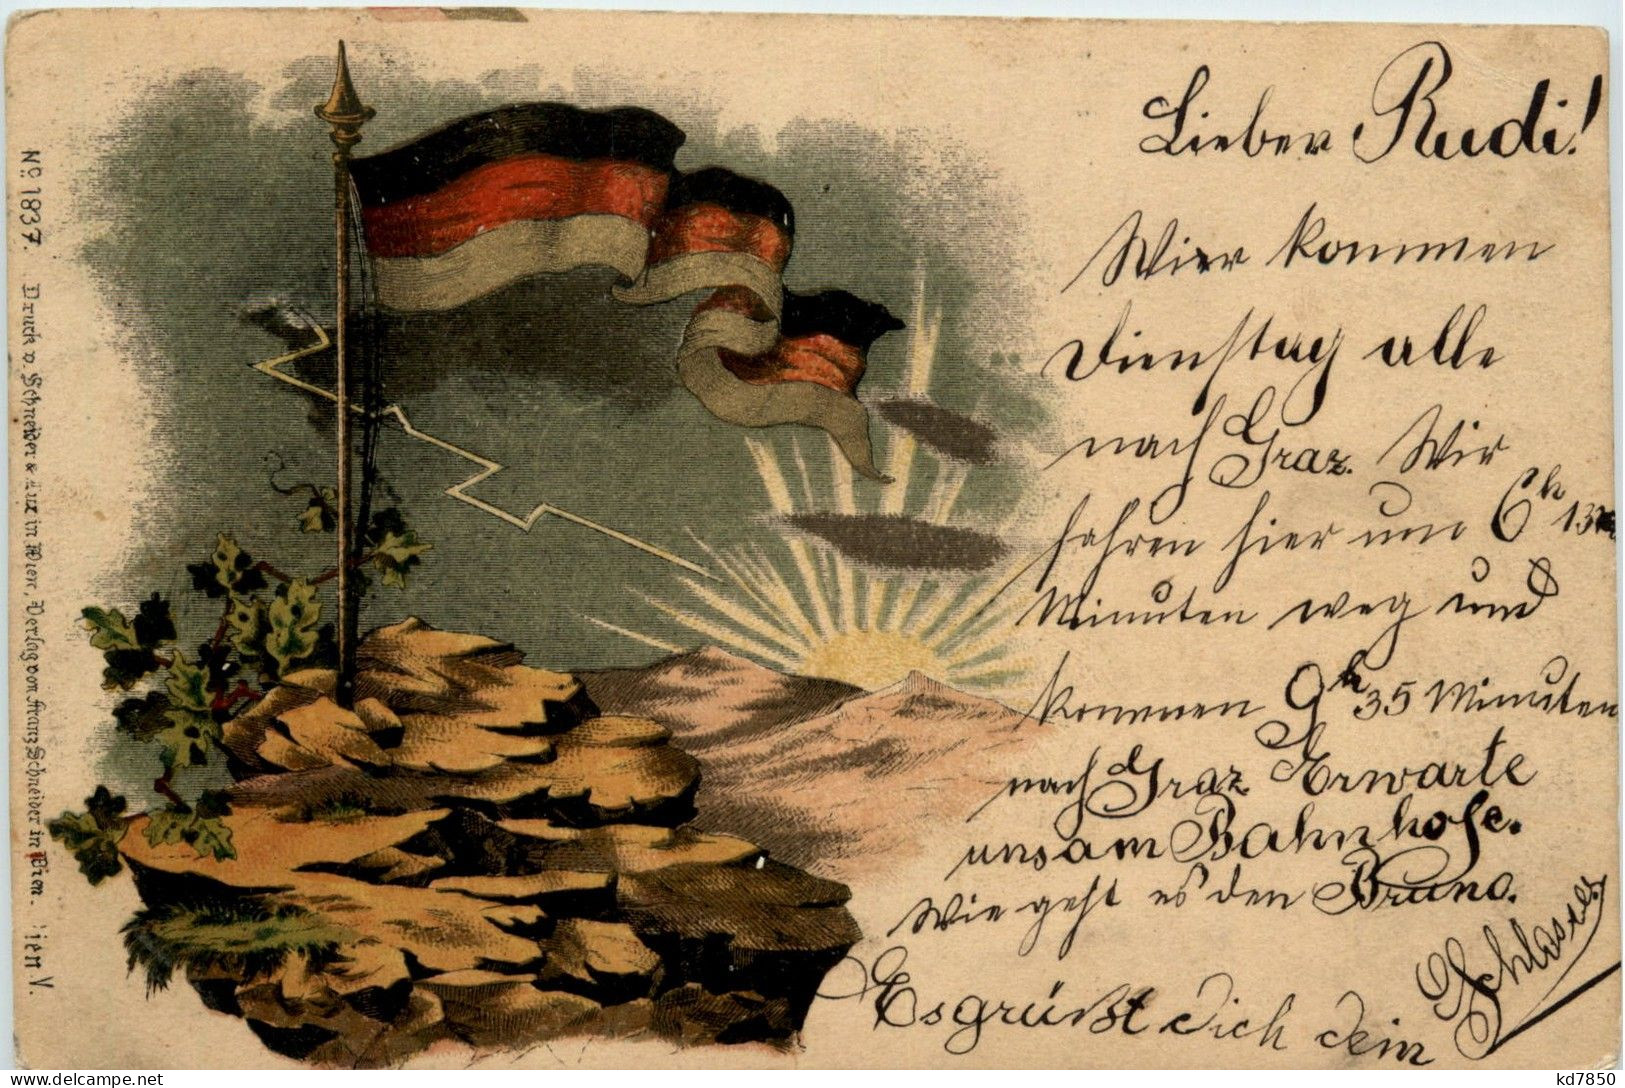 Lieber Rudi!
Wier kommen
Dienstag alle
nach Graz. Wir
fahren hier um 6h 13
Minuten weg und
kommen 9h 35 Minuten
nach Graz Erwarte
uns am Bahnhofe.
Wie geht es den Bruno.
Es grüßt dich dein
Schlosser
No. 1837. Druck v. Schneider & Lux in Wien, Verlag von Franz Schneider in Wien. ien V.
kd7850